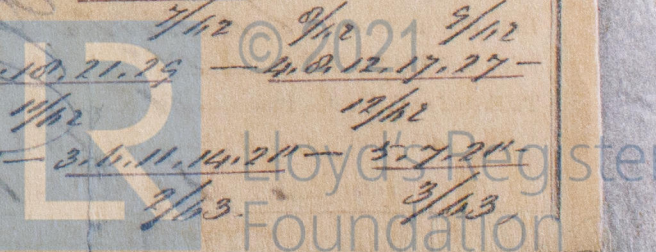 7/42 8/42 9/42
.18.21.29 — 4.8.12.17.27 —
11/42 12/42
— 3.4.11.14.24 — 5.7.24 —
2/43. 3/43.
LR
© 2021
Lloyd's Register
Foundation